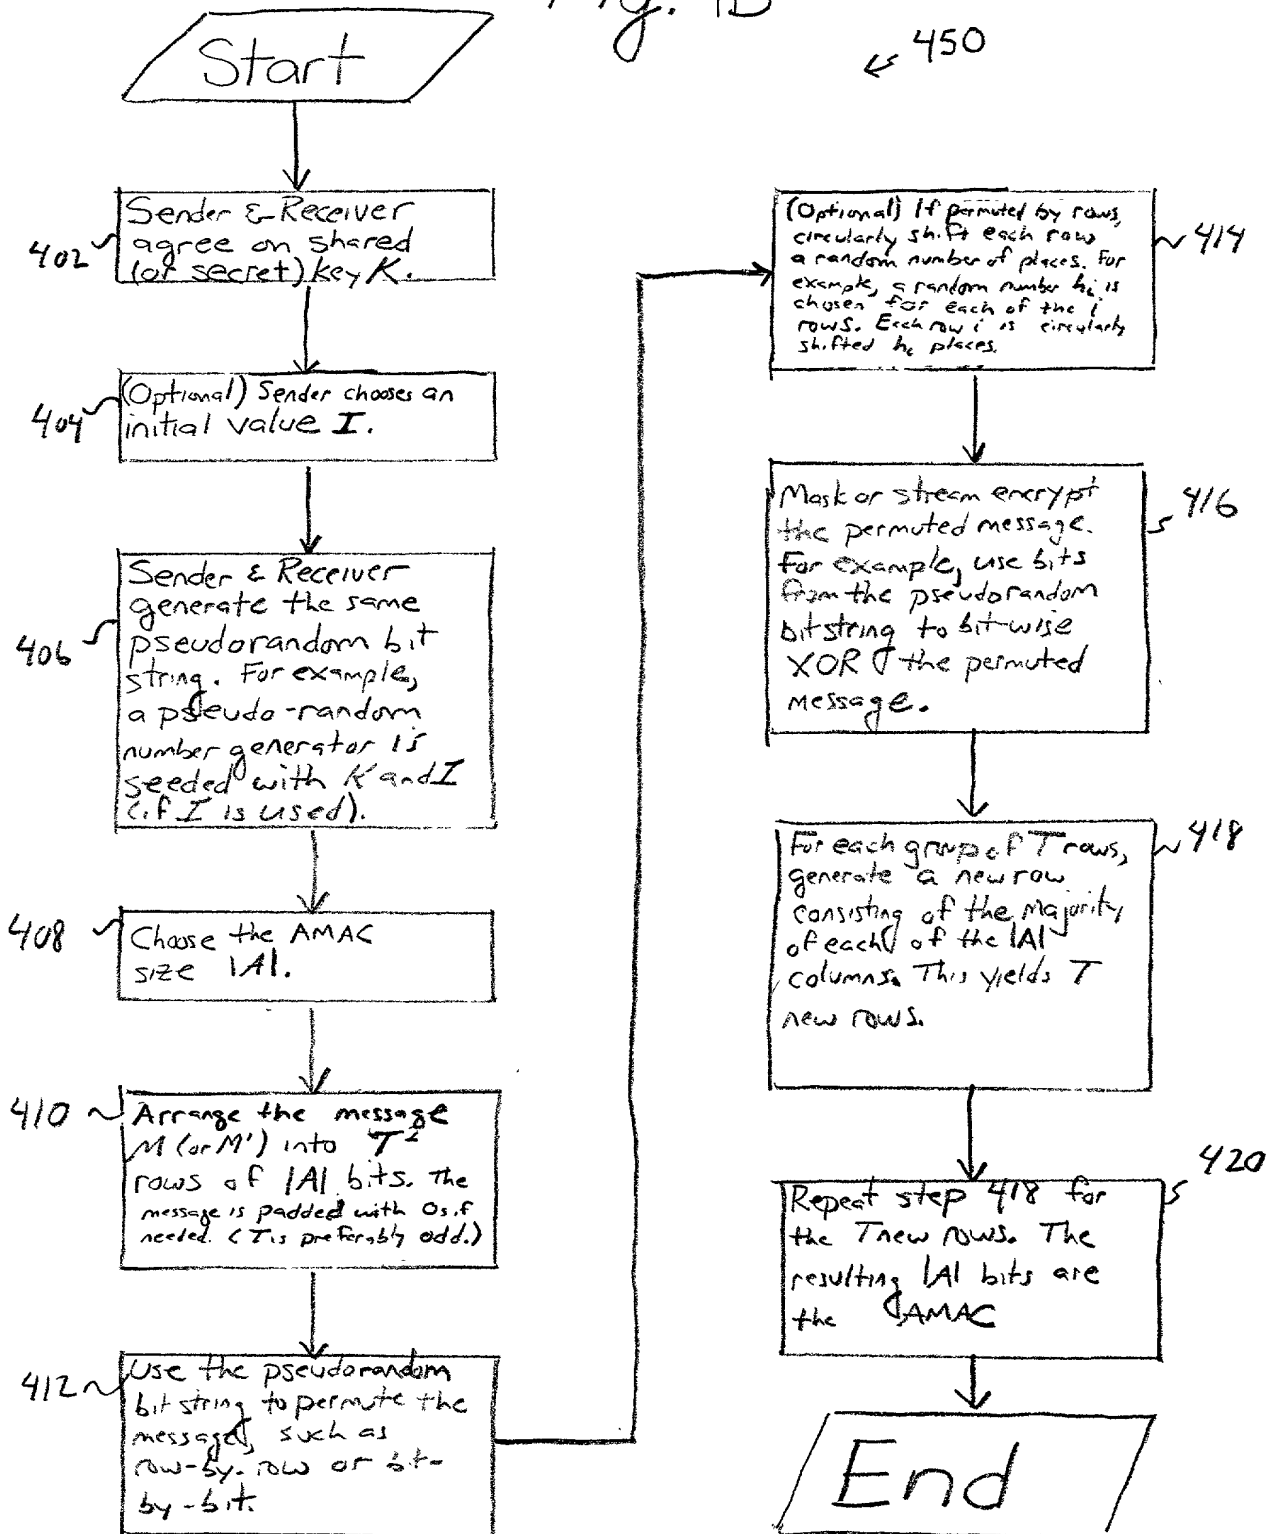 Fig. 4B
450
Start
402
Sender & Receiver
agree on shared
(or secret) key K.
404
(Optional) Sender chooses an
initial value I.
406
Sender & Receiver
generate the same
pseudorandom bit
string. For example,
a pseudo-random
number generator is
seeded with K and I
(if I is used).
408
Choose the AMAC
size |A|.
410
Arrange the message
M (or M') into T²
rows of |A| bits. The
message is padded with 0s if
needed. (T is preferably odd.)
412
Use the pseudorandom
bit string to permute the
message, such as
row-by-row or bit-
by-bit.
414
(Optional) If permuted by rows,
circularly shift each row
a random number of places. For
example, a random number hᵢ is
chosen for each of the i
rows. Each row i is circularly
shifted hᵢ places.
416
Mask or stream encrypt
the permuted message.
For example, use bits
from the pseudorandom
bitstring to bit-wise
XOR the permuted
message.
418
For each group of T rows,
generate a new row
consisting of the majority
of each of the |A|
columns. This yields T
new rows.
420
Repeat step 418 for
the T new rows. The
resulting |A| bits are
the AMAC
End